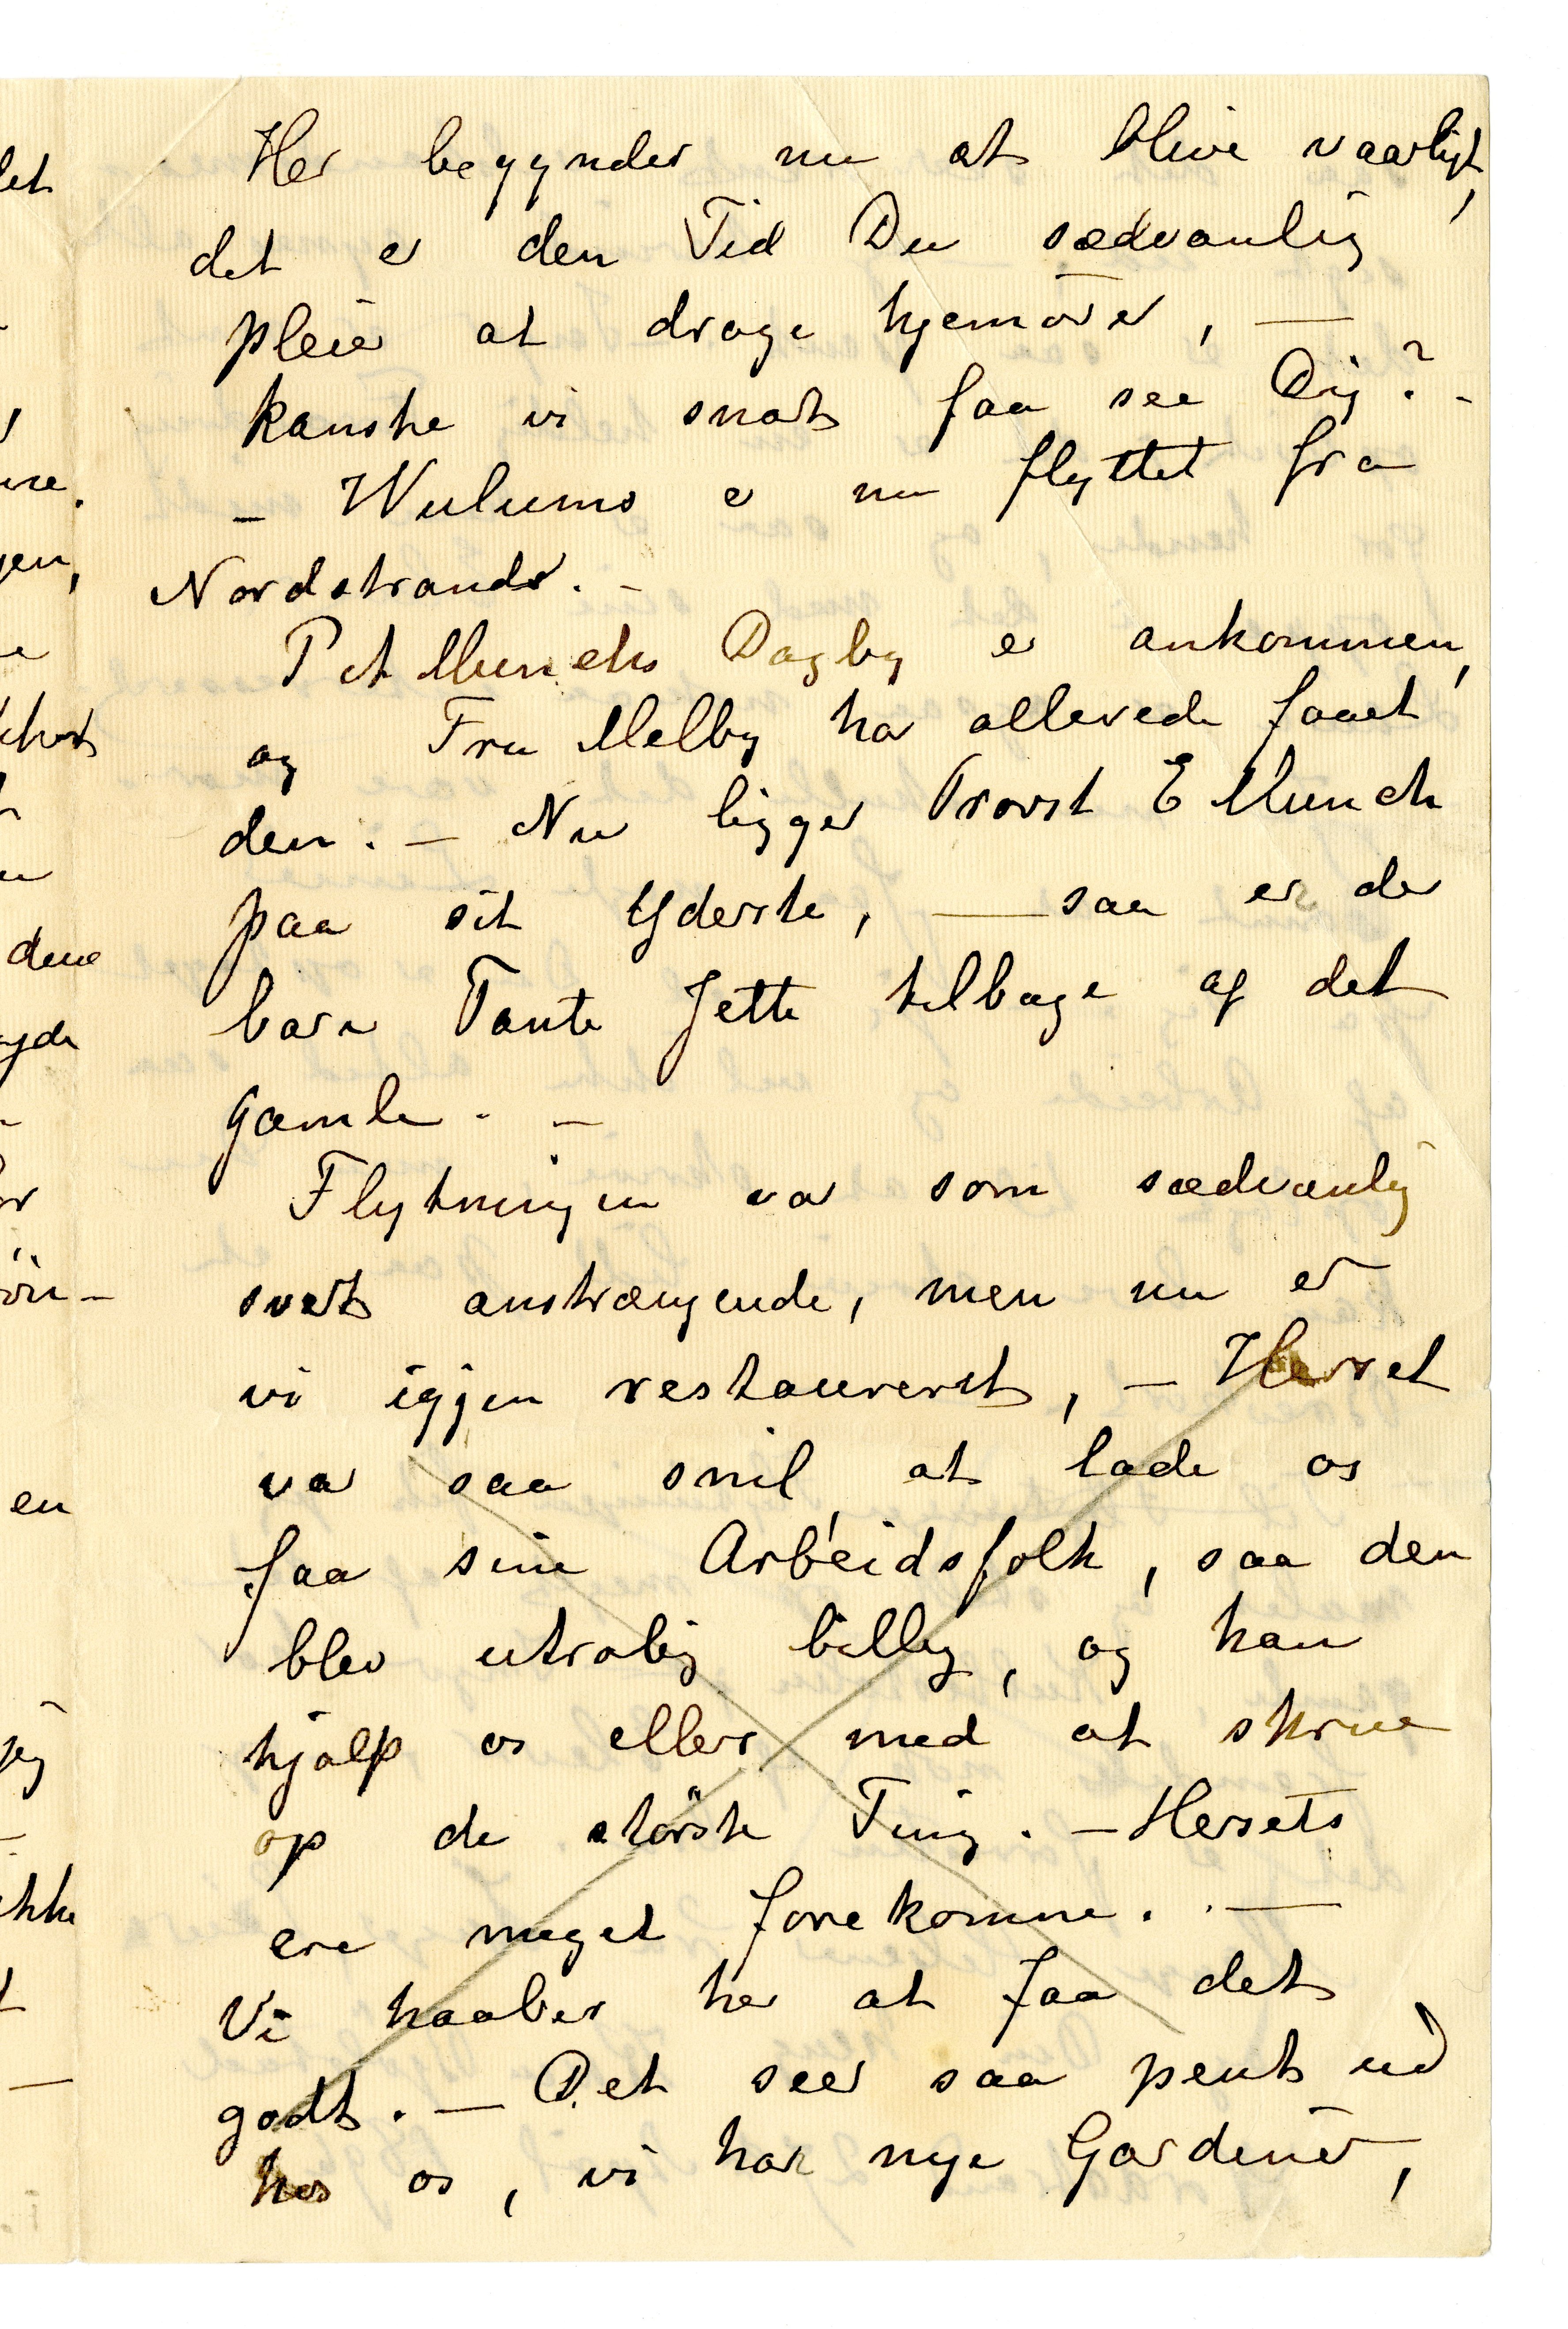 Her begynder nu at blive vaarligt,
det er den Tid Du sædvanlig
pleier at drage hjemover, —
kanske vi snart faa see Dig? -
— Wulums er nu flyttet fra
Nordstrand. —
P A Munchs Dagbog er ankommen,
og Fru Melby har allerede faaet
den. — Nu ligger Provst E Munch
paa sit Yderste, — saa er der
bare Tante Jette tilbage af det
Gamle. —
Flytningen var som sædvanlig
svært anstrængende, men nu er
vi igjen restaureret, — Herset
var saa snil at lade os
faa sine Arbeidsfolk, saa den
blev utrolig billig, og han
hjalp os eller med at skrue
op de største Ting. — Hersets
ere meget forekomne. . —
Vi haaber her at faa det
godt. — Det seer saa pent ud
hos os, vi har nye Gardiner,